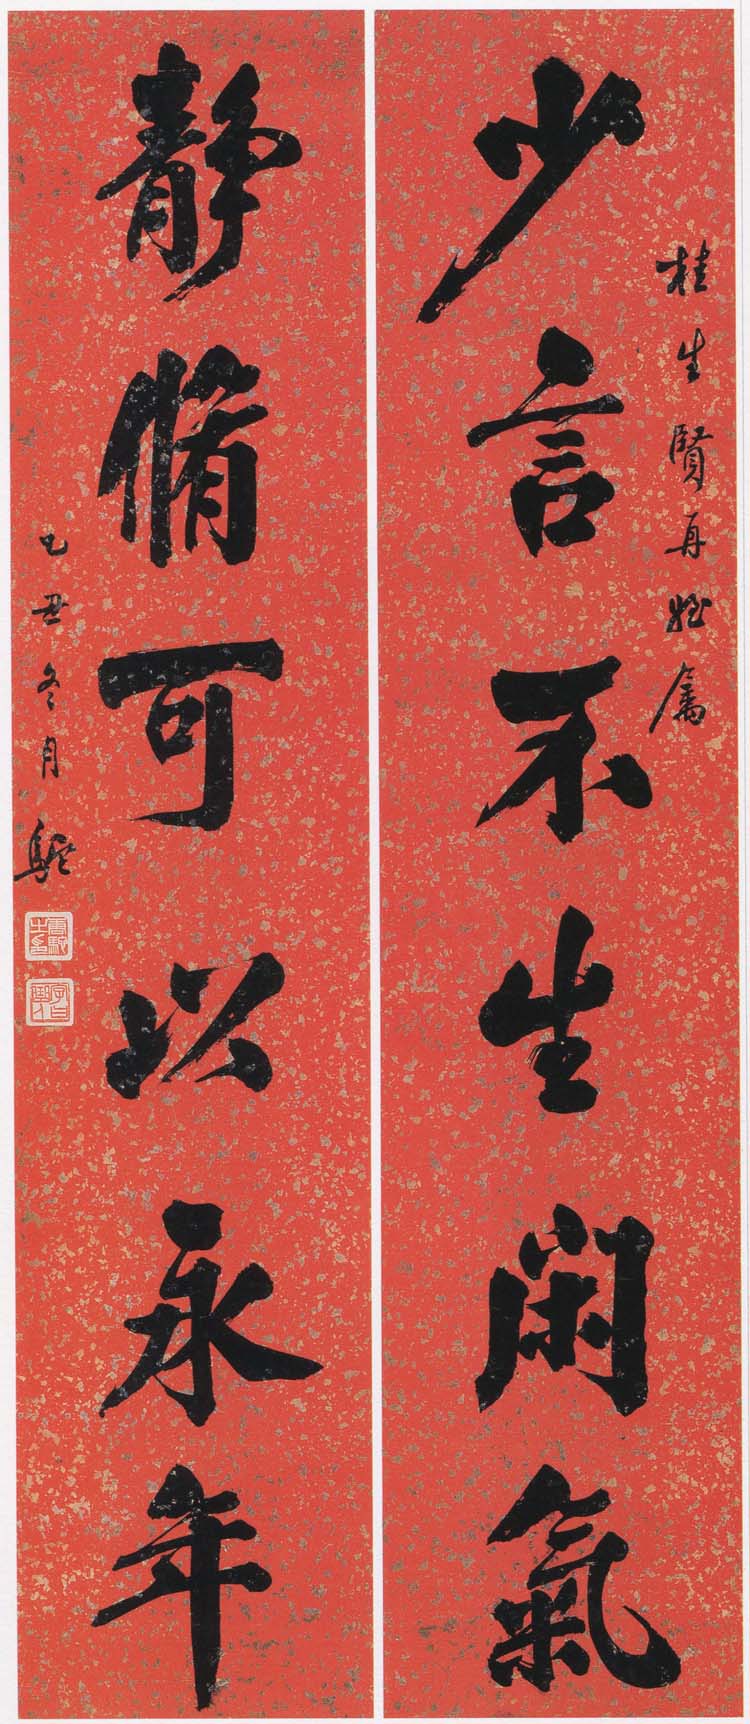 桂生賢再姪屬
少言不生閑氣
靜脩可以永年
乙丑冬月駝